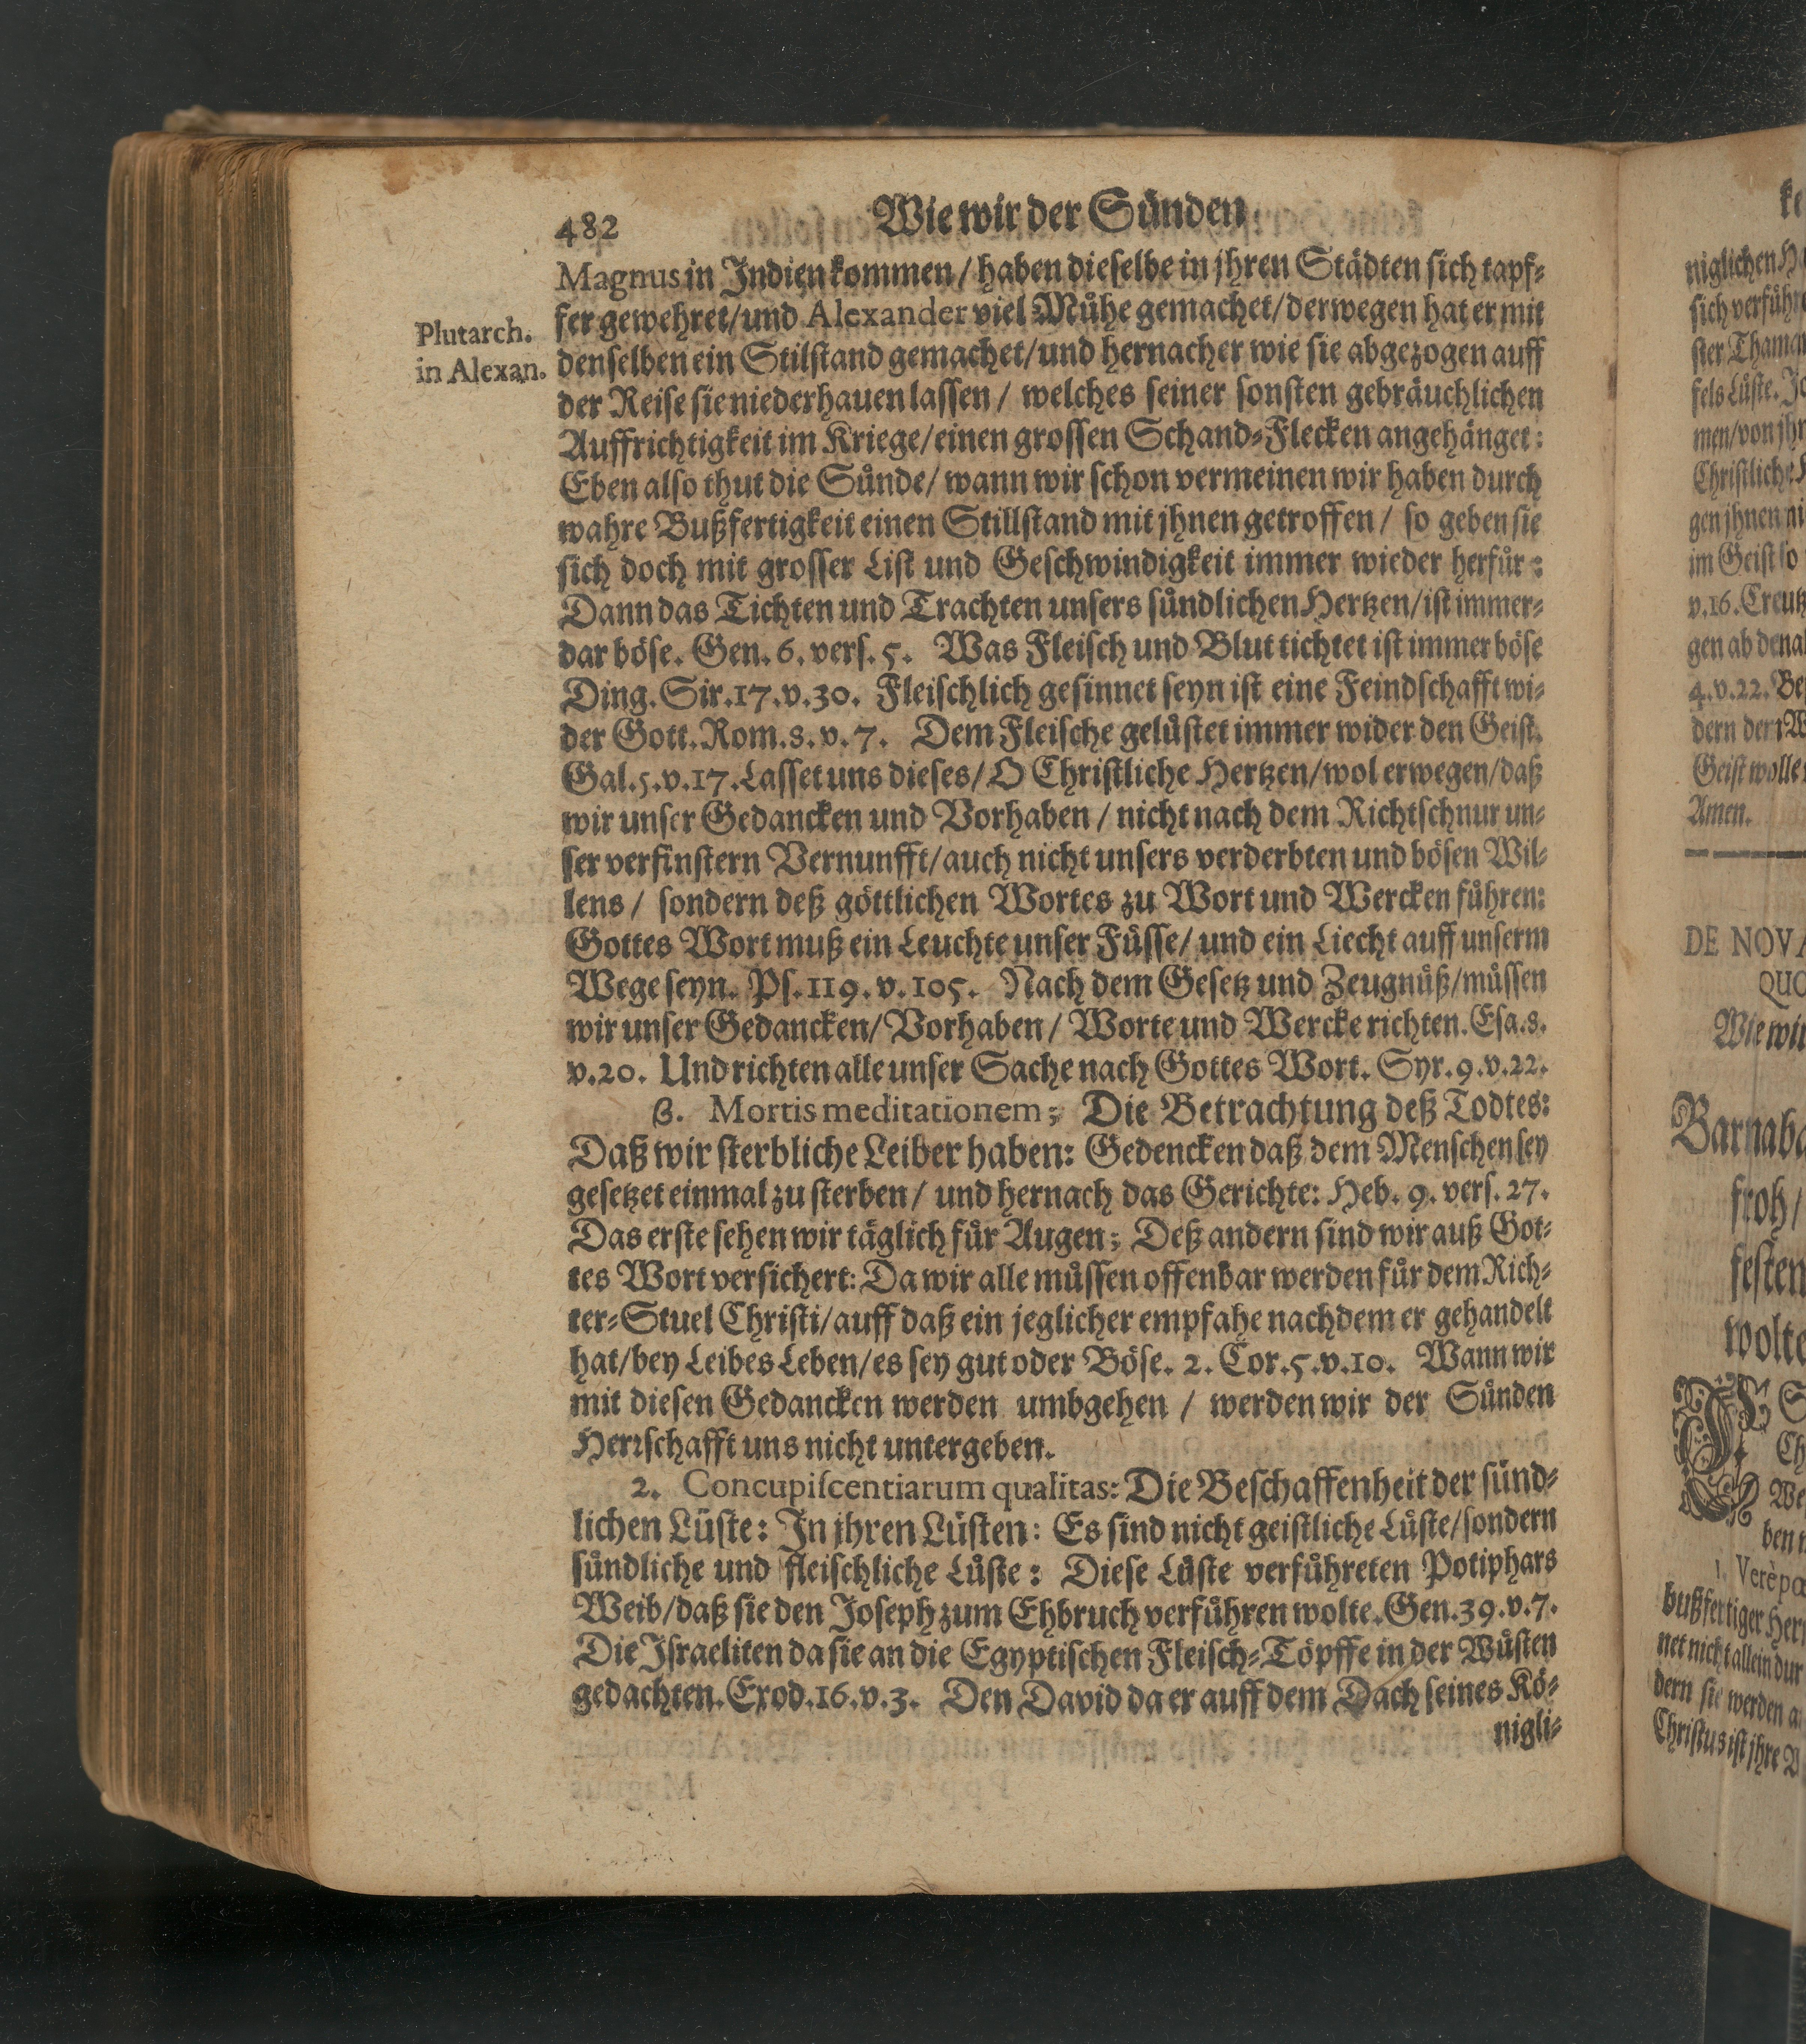 482 Wie wir der Sünden
Magnus in Indien kommen / haben dieselbe in jhren Städten sich tapf-
fer gewehret/und Alexander viel Mühe gemachet/derwegen hat er mit
Plutarch.
in Alexan.
denselben ein Stilstand gemachet/und hernacher wie sie abgezogen auff
der Reise sie niederhauen lassen / welches seiner sonsten gebräuchlichen
Auffrichtigkeit im Kriege/einen grossen Schand-Flecken angehänget:
Eben also thut die Sünde/ wann wir schon vermeinen wir haben durch
wahre Bußfertigkeit einen Stillstand mit jhnen getroffen / so geben sie
sich doch mit grosser List und Geschwindigkeit immer wieder herfür:
Dann das Tichten und Trachten unsers sündlichen Hertzen/ist immer-
dar böse. Gen. 6. vers. 5. Was Fleisch und Blut tichtet ist immer böse
Ding. Sir. 17. v. 30. Fleischlich gesinnet seyn ist eine Feindschafft wi-
der Gott. Rom. 8. v. 7. Dem Fleische gelüstet immer wider den Geist.
Gal. 5. v. 17. Lasset uns dieses/ O Christliche Hertzen/wol erwegen/daß
wir unser Gedancken und Vorhaben / nicht nach dem Richtschnur un-
ser verfinstern Vernunfft/auch nicht unsers verderbten und bösen Wil-
lens / sondern deß göttlichen Wortes zu Wort und Wercken führen:
Gottes Wort muß ein Leuchte unser Füsse/ und ein Liecht auff unserm
Wege seyn. Ps. 119. v. 105. Nach dem Gesetz und Zeugnüß/müssen
wir unser Gedancken/ Vorhaben / Worte und Wercke richten. Esa. 8.
v. 20. Und richten alle unser Sache nach Gottes Wort. Syr. 9. v. 22.
β. Mortis meditationem; Die Betrachtung deß Todtes:
Daß wir sterbliche Leiber haben: Gedencken daß dem Menschen sey
gesetzet einmal zu sterben / und hernach das Gerichte: Heb. 9. vers. 27.
Das erste sehen wir täglich für Augen; Deß andern sind wir auß Got-
tes Wort versichert: Da wir alle müssen offenbar werden für dem Rich-
ter-Stuel Christi/auff daß ein jeglicher empfahe nachdem er gehandelt
hat/bey Leibes Leben/es sey gut oder Böse. 2. Cor. 5. v. 10. Wann wir
mit diesen Gedancken werden umbgehen / werden wir der Sünden
Herrschafft uns nicht untergeben.
2. Concupiscentiarum qualitas: Die Beschaffenheit der sünd-
lichen Lüste: In jhren Lüsten: Es sind nicht geistliche Lüste/sondern
sündliche und fleischliche Lüste: Diese Lüste verführeten Potiphars
Weib/daß sie den Joseph zum Ehbruch verführen wolte. Gen. 39. v. 7.
Die Israeliten da sie an die Egyptischen Fleisch-Töpffe in der Wüsten
gedachten. Exod. 16. v. 3. Den David da er auff dem Dach seines Kö-
nigli-
niglichen
sich verführ
ster Thamar
fels Lüste.
men/von jhr
Christliche
gen jhnen ni
im Geist so
v. 16. Creutz
gen ab
4. v. 22.
dern der
Geist wolle
Amen.
DE NOVA
QUO
Wie wir
Barnaba
froh/
festen
wolte
1. Verè
bußfertiger
net nicht allein dur
dern sie werden
Christus ist jhre